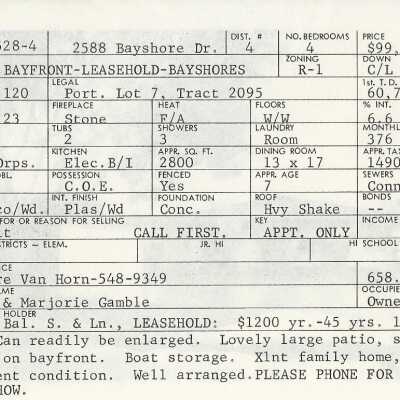 DIST. # NO. BEDROOMS PRICE
528-4 2588 Bayshore Dr. 4 4 $99,
ZONING DOWN
BAYFRONT-LEASEHOLD-BAYSHORES R-1 C/L
LEGAL 1st T.D.
120 Port. Lot 7, Tract 2095 60,7
FIREPLACE HEAT FLOORS % INT.
23 Stone F/A W/W 6.6
TUBS SHOWERS LAUNDRY MONTHL
2 3 Room 376
KITCHEN APPR. SQ. FT. DINING ROOM APPR. TAX
Drps. Elec.B/I 2800 13 x 17 1490
BL. POSSESSION FENCED APPR. AGE SEWERS
C.O.E. Yes 7 Conn
INT. FINISH FOUNDATION ROOF BONDS
co/Wd. Plas/Wd Conc. Hvy Shake --
FOR OR REASON FOR SELLING KEY INCOME
it CALL FIRST. APPT. ONLY
STRICTS – ELEM. JR. HI HI SCHOOL
ICE
re Van Horn-548-9349 658.
AME OCCUPIE
& Marjorie Gamble Owne
HOLDER
Bal. S. & Ln., LEASEHOLD: $1200 yr.-45 yrs. 1
Can readily be enlarged. Lovely large patio, s
on bayfront. Boat storage. Xlnt family home,
ent condition. Well arranged.PLEASE PHONE FOR
HOW.